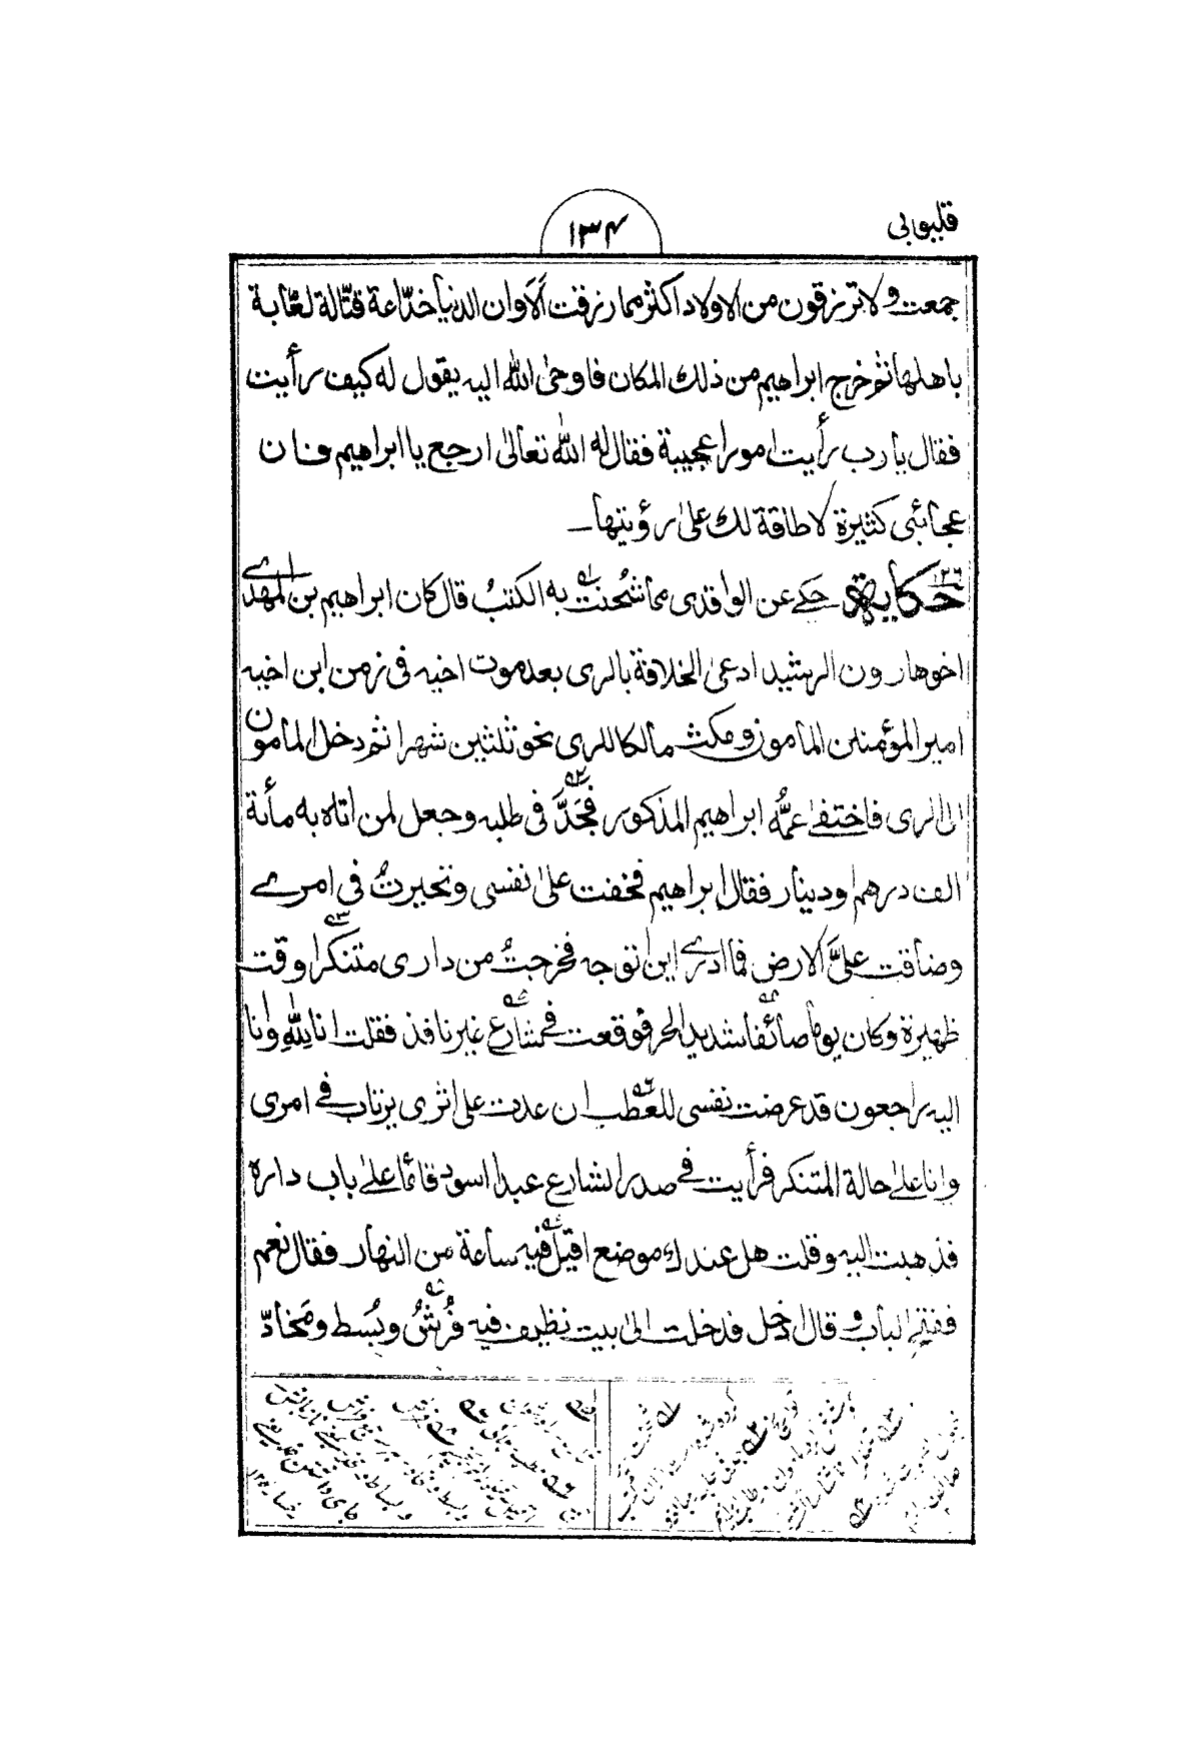 قليوبى
١٣٤
جمعت ولا ترزقون من الاولاد اكثر مما رزقت ألا وان الدنيا خدّاعة قتّالة لعّابة
باهلها ثم خرج ابراهيم من ذلك المكان فاوحى الله اليه يقول له كيف رأيت
فقال يا رب رأيت امورا عجيبة فقال له الله تعالىٰ ارجع يا ابراهيم فان
عجائبى كثيرة لا طاقة لك علىٰ رؤيتها۔
حكاية ١٢٦ حكے عن الواقدى مما شُحنت به الكتبُ قال كان ابراهيم بن المهدے
اخو هارون الرشيد ادعى الخلافة بالرى بعد موت اخيه فى زمن ابن اخيه
امير المؤمنين المامون ومكث مالكا للرى نحو ثلثين شهرا ثم دخل المامون
الى الرى فاختفىٰ عمُّه ابراهيم المذكور فجَدَّ فى طلبه وجعل لمن اتاه به مأئة
الف درهم او دينار فقال ابراهيم فخفت علىٰ نفسى وتحيرتُ فى امرے
وضاقت علىَّ الارض فما ادرے اين اتوجه فخرجتُ من دارى متنكرا وقت
ظهيرة وكان يوما صائفا شديد الحر فوقعت فے شارع غير نافذ فقلت انا لِلّٰهِ وانا
اليه راجعون قد عرضت نفسى للعطب ان عدت على اثرى يرتاب فے امرى
وانا علىٰ حالة المتنكر فرأيت فے صدر الشارع عبدا اسود قائما علىٰ باب داره
فذهبت اليه وقلت هل عندك موضع اقيل فيه ساعة من النهار فقال نعم
ففتح الباب و قال ادخل فدخلت الىٰ بيت نظيف فيه فُرُشٌ وبُسط ومَخادّ